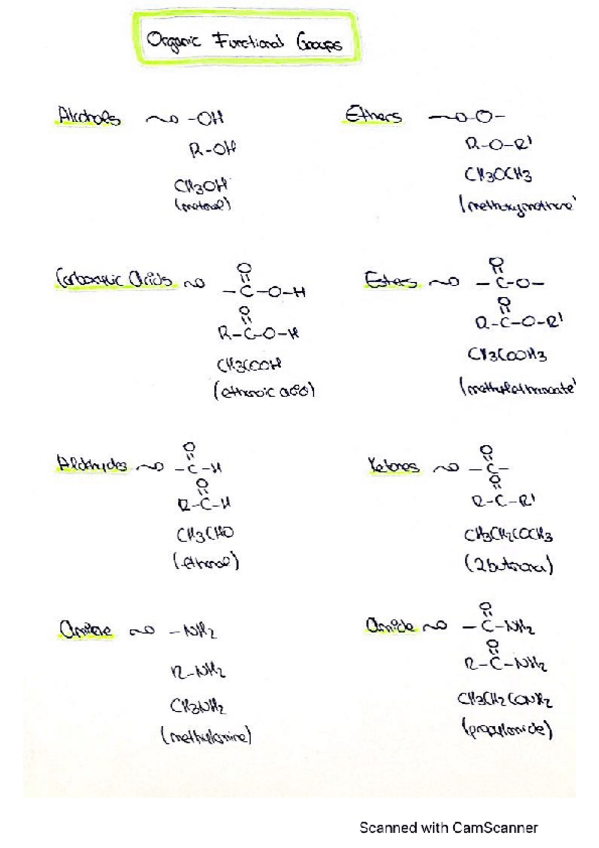 Organic Functional Groups
Alcohols ~ -OH
R-OH
CH3OH
(metanol)
Ethers ~ -O-
R-O-R'
CH3OCH3
(methoxymethane
Carboxylic acids ~ O
-C-O-H
O
R-C-O-H
CH3COOH
(ethanoic acid)
Esters ~ O
-C-O-
O
R-C-O-R'
CH3COOH3
(methylethanoate
Aldehydes ~ O
-C-H
O
R-C-H
CH3CHO
(ethanal)
Ketones ~ O
-C-
O
R-C-R'
CH3CH2COCH3
Amine ~ -NH2
R-NH2
CH3NH2
(methylamine)
Amide ~ O
-C-NH2
O
R-C-NH2
CH3CH2CONH2
Scanned with CamScanner